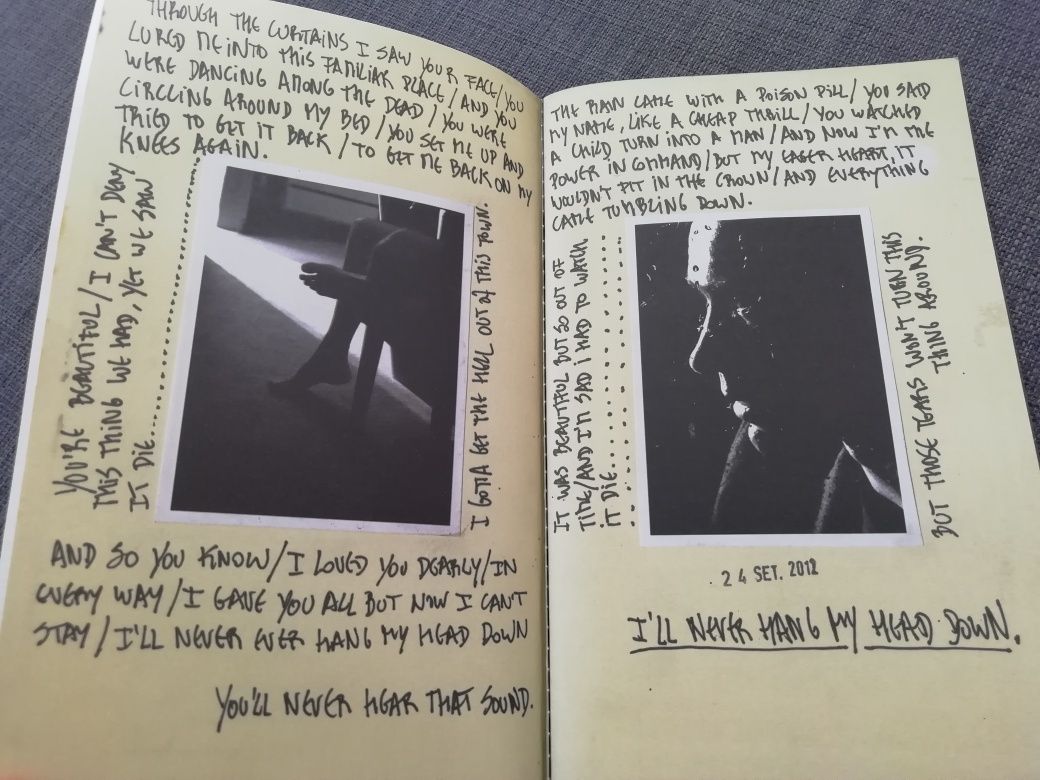 THROUGH THE CURTAINS I SAW YOUR FACE/YOU
LURED ME INTO THIS FAMILIAR PLACE/AND YOU
WERE DANCING AMONG THE DEAD/YOU WERE
CIRCLING AROUND MY BED/YOU SET ME UP AND
TRIED TO GET IT BACK/TO GET ME BACK ON MY
KNEES AGAIN.
YOU'RE BEAUTIFUL/I CAN'T DENY
THIS THING WE HAD, YET WE SAW
IT DIE...
I GOTTA GET THE HELL OUT OF THIS TOWN.
AND SO YOU KNOW/I LOVED YOU DEARLY/IN
EVERY WAY/I GAVE YOU ALL BUT NOW I CAN'T
STAY/I'LL NEVER EVER HANG MY HEAD DOWN
YOU'LL NEVER HEAR THAT SOUND.
THE RAIN CAME WITH A POISON PILL/YOU SAID
MY NAME, LIKE A CHEAP THRILL/YOU WATCHED
A CHILD TURN INTO A MAN/AND NOW I'M THE
POWER IN COMMAND/BUT MY EAGER HEART, IT
WOULDN'T FIT IN THE CROWN/AND EVERYTHING
CAME TUMBLING DOWN.
IT WAS BEAUTIFUL BUT SO OUT OF
TIME/AND I'M SAD I HAD TO WATCH
IT DIE...
BUT THOSE TEARS WON'T TURN THIS
THING AROUND
24 SET. 2012
I'LL NEVER HANG MY HEAD DOWN.